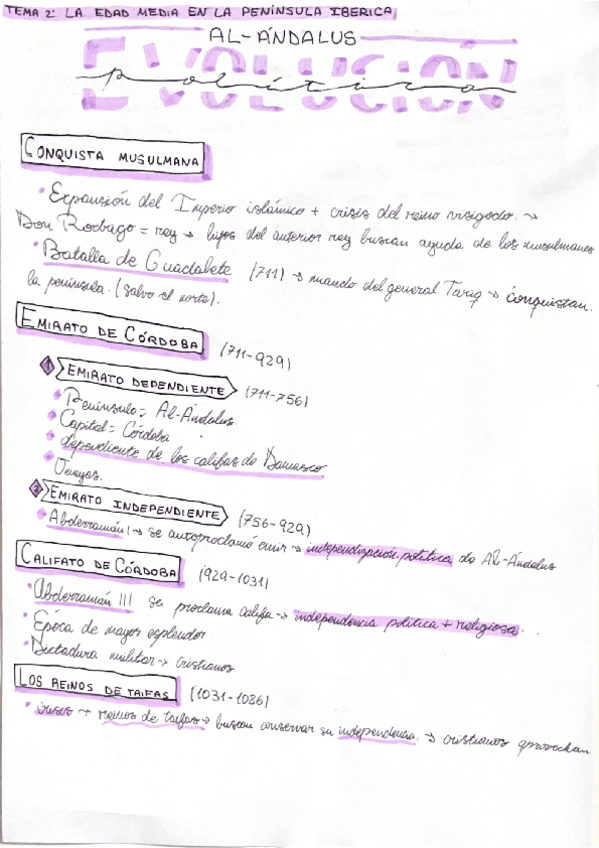 TEMA 2: LA EDAD MEDIA EN LA PENÍNSULA IBERICA
AL-ÁNDALUS
EVOLUCIÓN
política
CONQUISTA MUSULMANA
• Expansión del Imperio islámico + crisis del reino visigodo. →
Don Rodrigo = rey → hijos del anterior rey buscan ayuda de los musulmanes
• Batalla de Guadalete (711) → mando del general Tariq → conquistan
la península. (salvo el norte).
EMIRATO DE CÓRDOBA (711-929)
1 EMIRATO DEPENDIENTE (711-756)
• Península = Al-Ándalus
• Capital = Córdoba
• dependiente de los califas de Damasco
• Omeyas.
2 EMIRATO INDEPENDIENTE (756-929)
• Abderramán I → se autoproclamó emir → independización política de Al-Ándalus
CALIFATO DE CÓRDOBA (929-1031)
• Abderramán III se proclama califa → independencia política + religiosa.
• Época de mayor esplendor
• Dictadura militar → cristianos
LOS REINOS DE TAIFAS (1031-1086)
• crisis → reinos de taifas → buscan conservar su independencia. → cristianos aprovechan